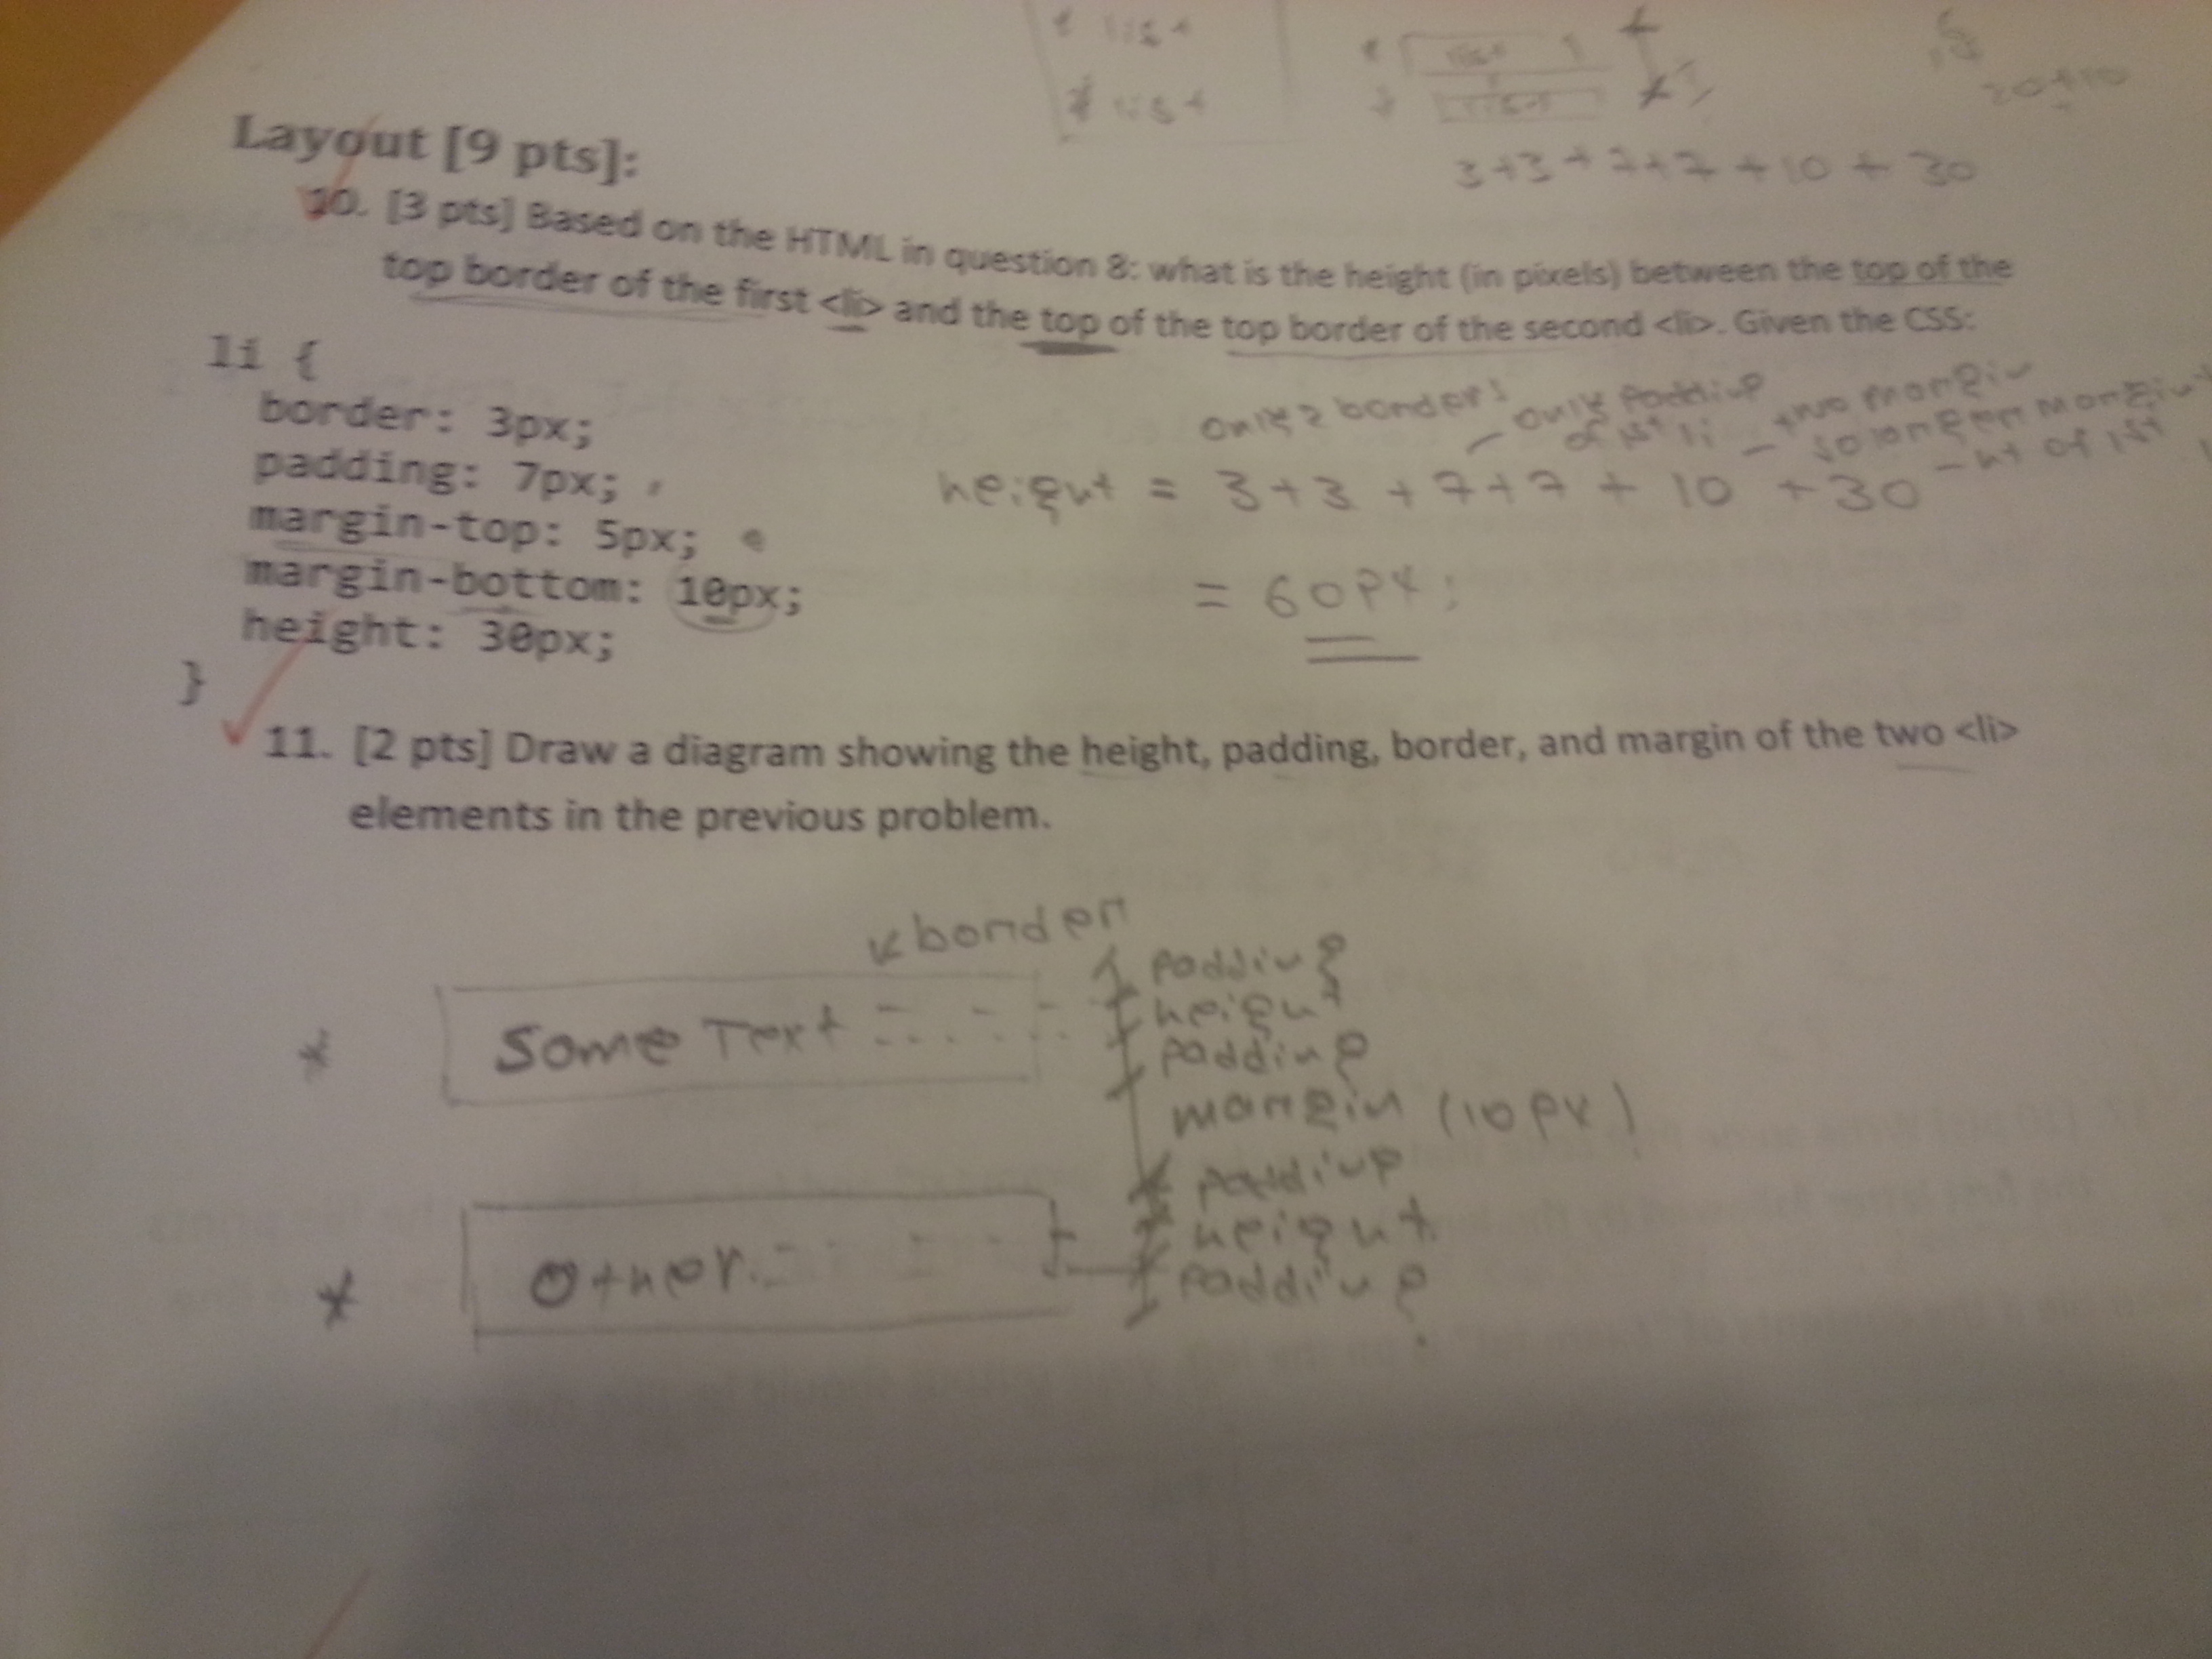 * list
* list
list
20+10
3+3+7+7+10+30
Layout [9 pts]:
10. [3 pts] Based on the HTML in question 8: what is the height (in pixels) between the top of the
top border of the first <li> and the top of the top border of the second <li>. Given the CSS:
li {
border: 3px;
padding: 7px;
margin-top: 5px;
margin-bottom: 10px;
height: 30px;
}
only 2 borders
- only padding
of 1st li
- two margin
so longer margin
- ht of 1st
height = 3+3+7+7+10+30
= 60px;
11. [2 pts] Draw a diagram showing the height, padding, border, and margin of the two <li>
elements in the previous problem.
border
* Some Text
padding
height
padding
margin (10px)
* Other
padding
height
padding